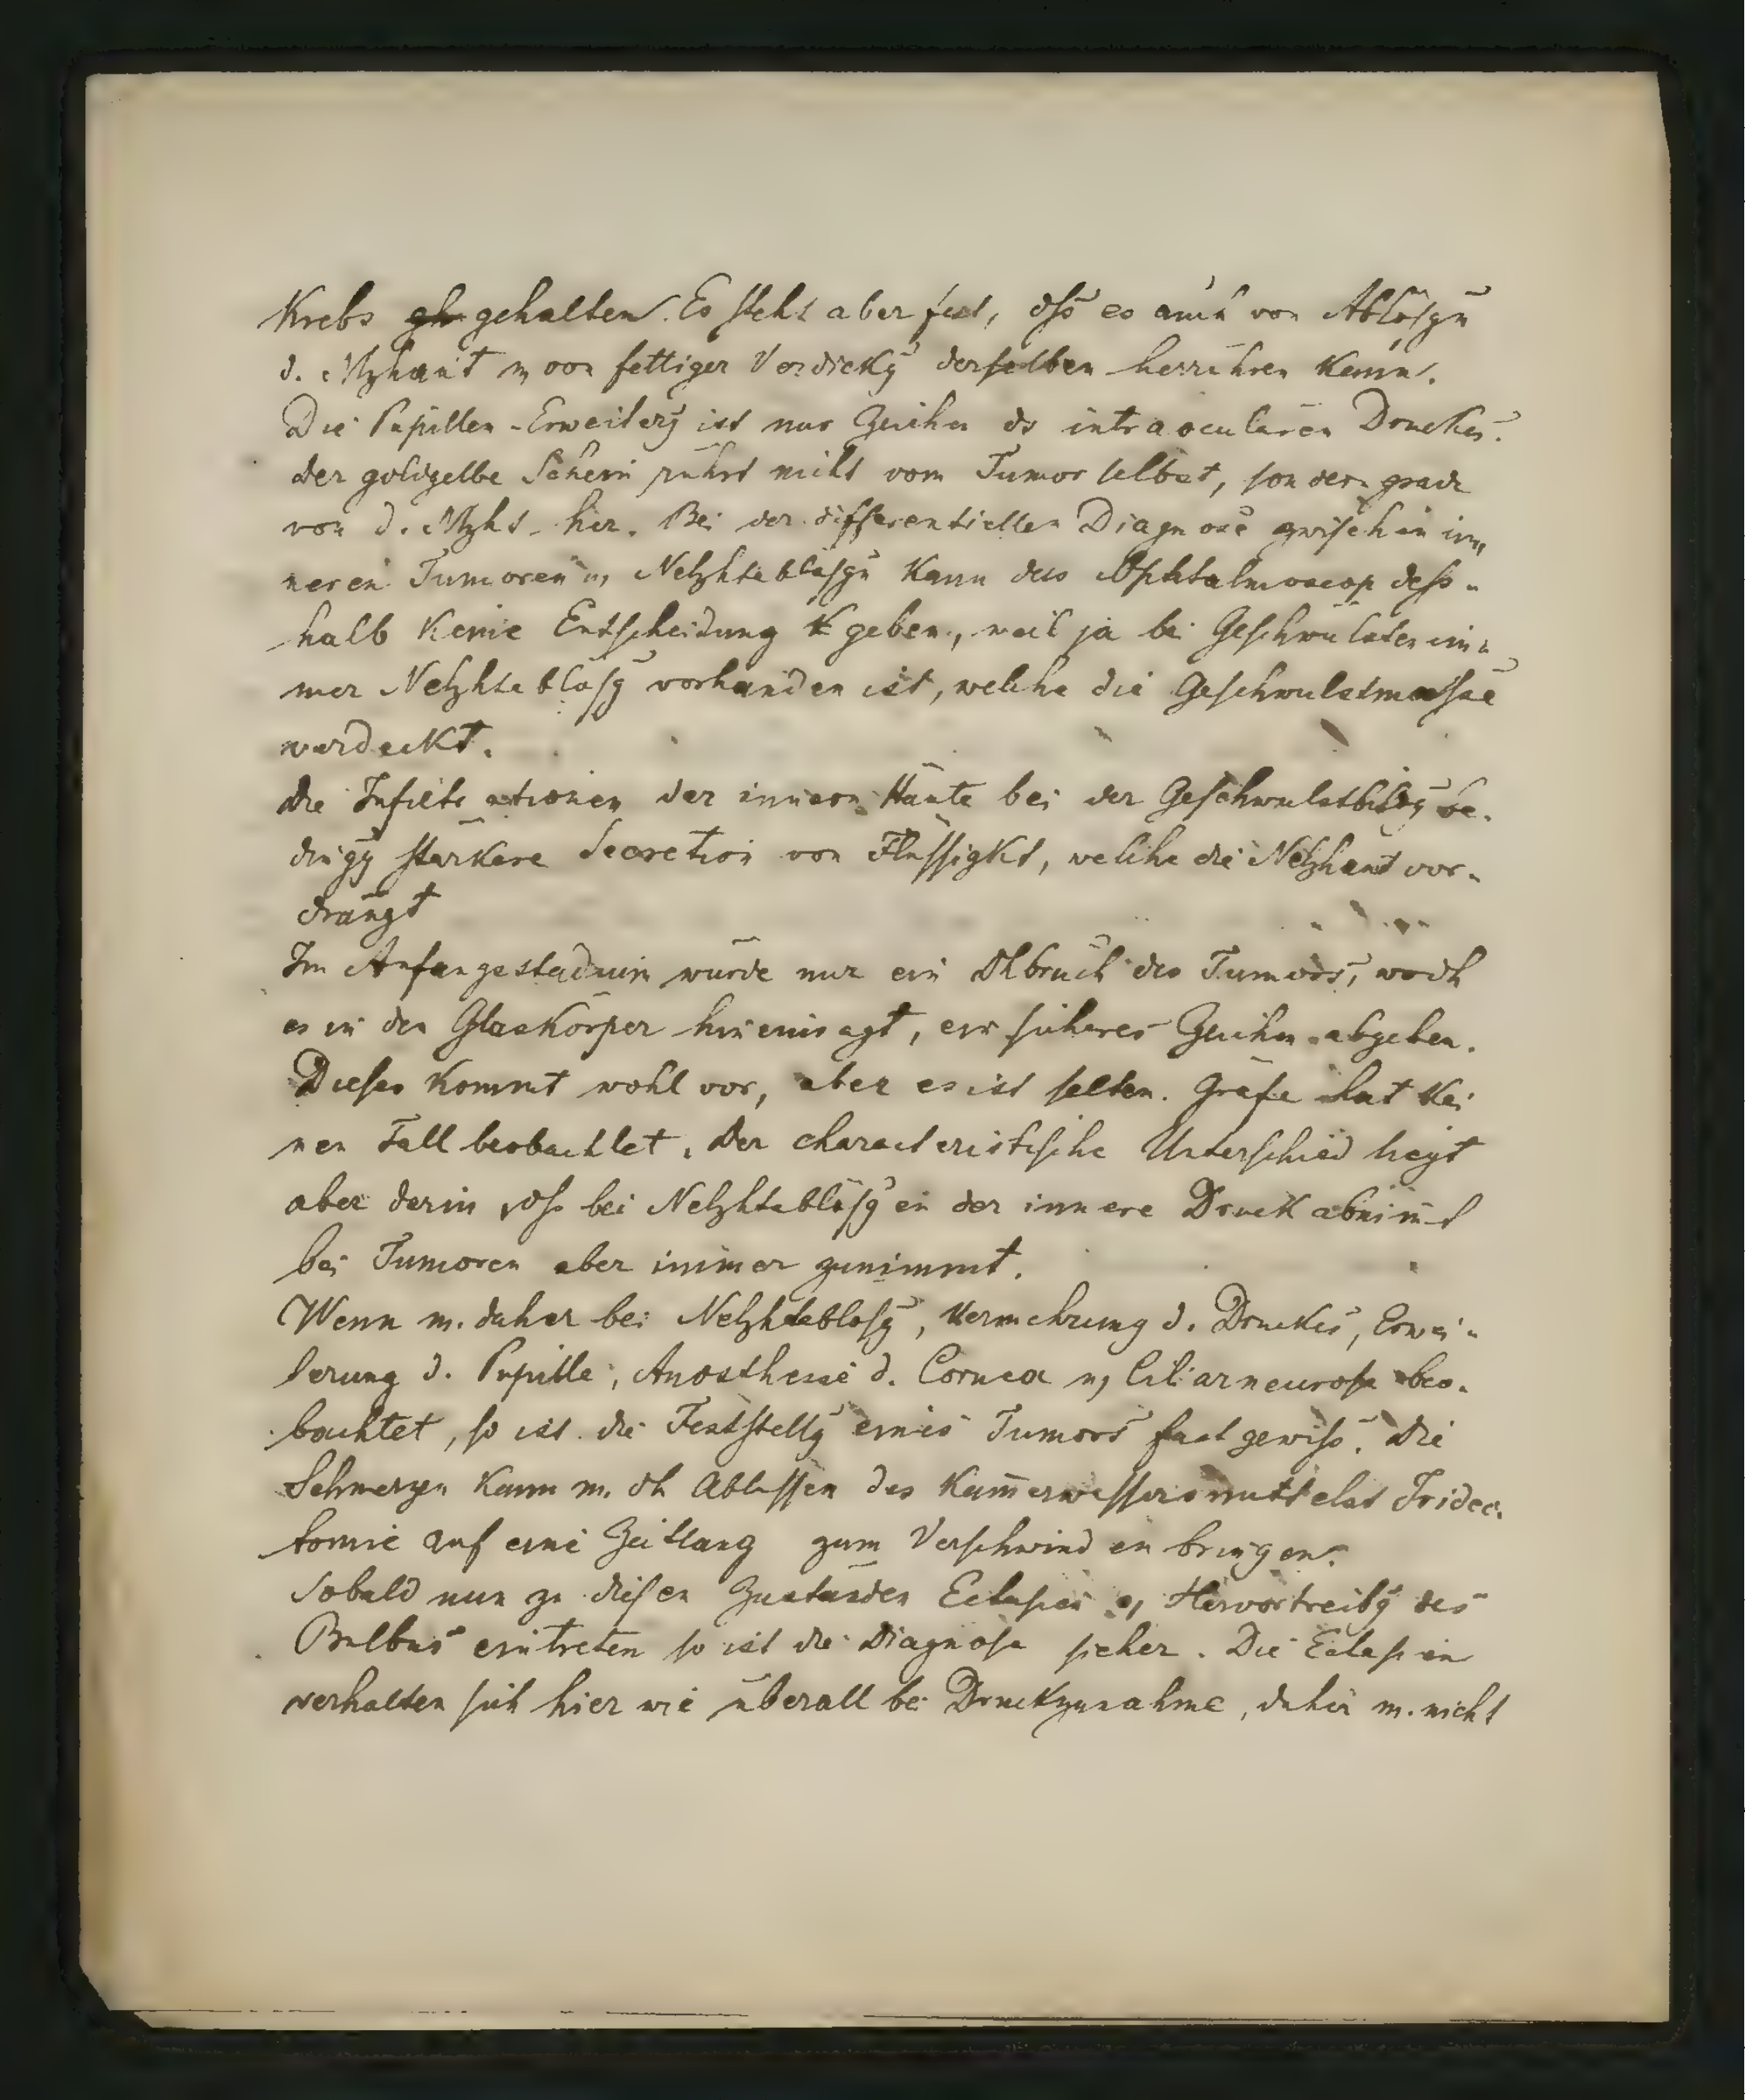 Krebs gh gehalten. Es steht aber fest, dß es auch von Ablösgn
d. Nzhaut u, von fettiger Verdickg derselben herrühren kann.
Die Pupillen-Erweiterg ist nur Zeichen ds intraocularen Druckes.
der goldgelbe Schein rührt nicht vom Tumor selbst, sondern grade
von d. Nzht her. Bei der differentiellen Diagnose zwischen in-
neren Tumoren u, Netzhtablösgn kann das Ophtalmoscop deß-
halb keine Entscheidung k geben, weil ja bei Geschwülsten im-
mer Netzhtablösg vorhanden ist, welche die Geschwulstmasse
verdeckt.
die Infiltrationen der innern Häute bei der Geschwulstbildg be-
dingg stärkere Secretion von Flüssigkt, welche die Netzhaut vor-
drängt
Im Anfangsstadium würde nur ein dhbruch des Tumors, wodh
es in den Glaskörper hineinragt, ein sicheres Zeichen abgeben.
Dieses kommt wohl vor, aber es ist selten. Gräfe hat kei
nen Fall beobachtet. Der characteristische Unterschied liegt
aber darin, dß bei Netzhtablösgen der innere Druck abnim̄t
bei Tumoren aber immer zunimmt.
Wenn m. daher bei Netzhtablösg, Vermehrung d. Druckes, Erwei-
terung d. Pupille, Anästhesie d. Cornea u, Ciliarneurose beo-
bachtet, so ist die Feststellg eines Tumors fast gewiß. Die
Schmerzen kann m. dh Ablassen des Kam̄erwassers mittelst Iridec-
tomie auf eine Zeitlang zum Verschwinden bringen.
Sobald nun zu diesen Zuständen Ectasien u, Hervortreibg des
Bulbus eintreten so ist die Diagnose sicher. Die Ectasien
verhalten sich hier wie überall bei Druckzunahme, daher m. nicht